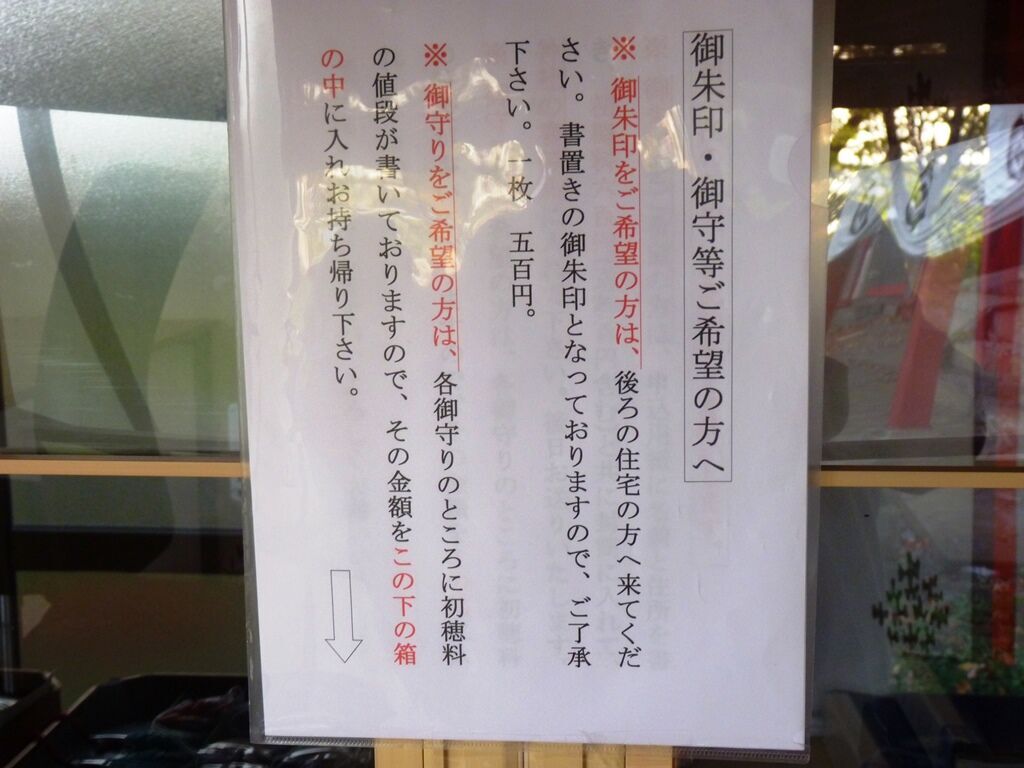 御朱印・御守等ご希望の方へ
※ 御朱印をご希望の方は、後ろの住宅の方へ来てくだ
さい。書置きの御朱印となっておりますので、ご了承
下さい。一枚　五百円。
※ 御守りをご希望の方は、各御守りのところに初穂料
の値段が書いておりますので、その金額をこの下の箱
の中に入れお持ち帰り下さい。